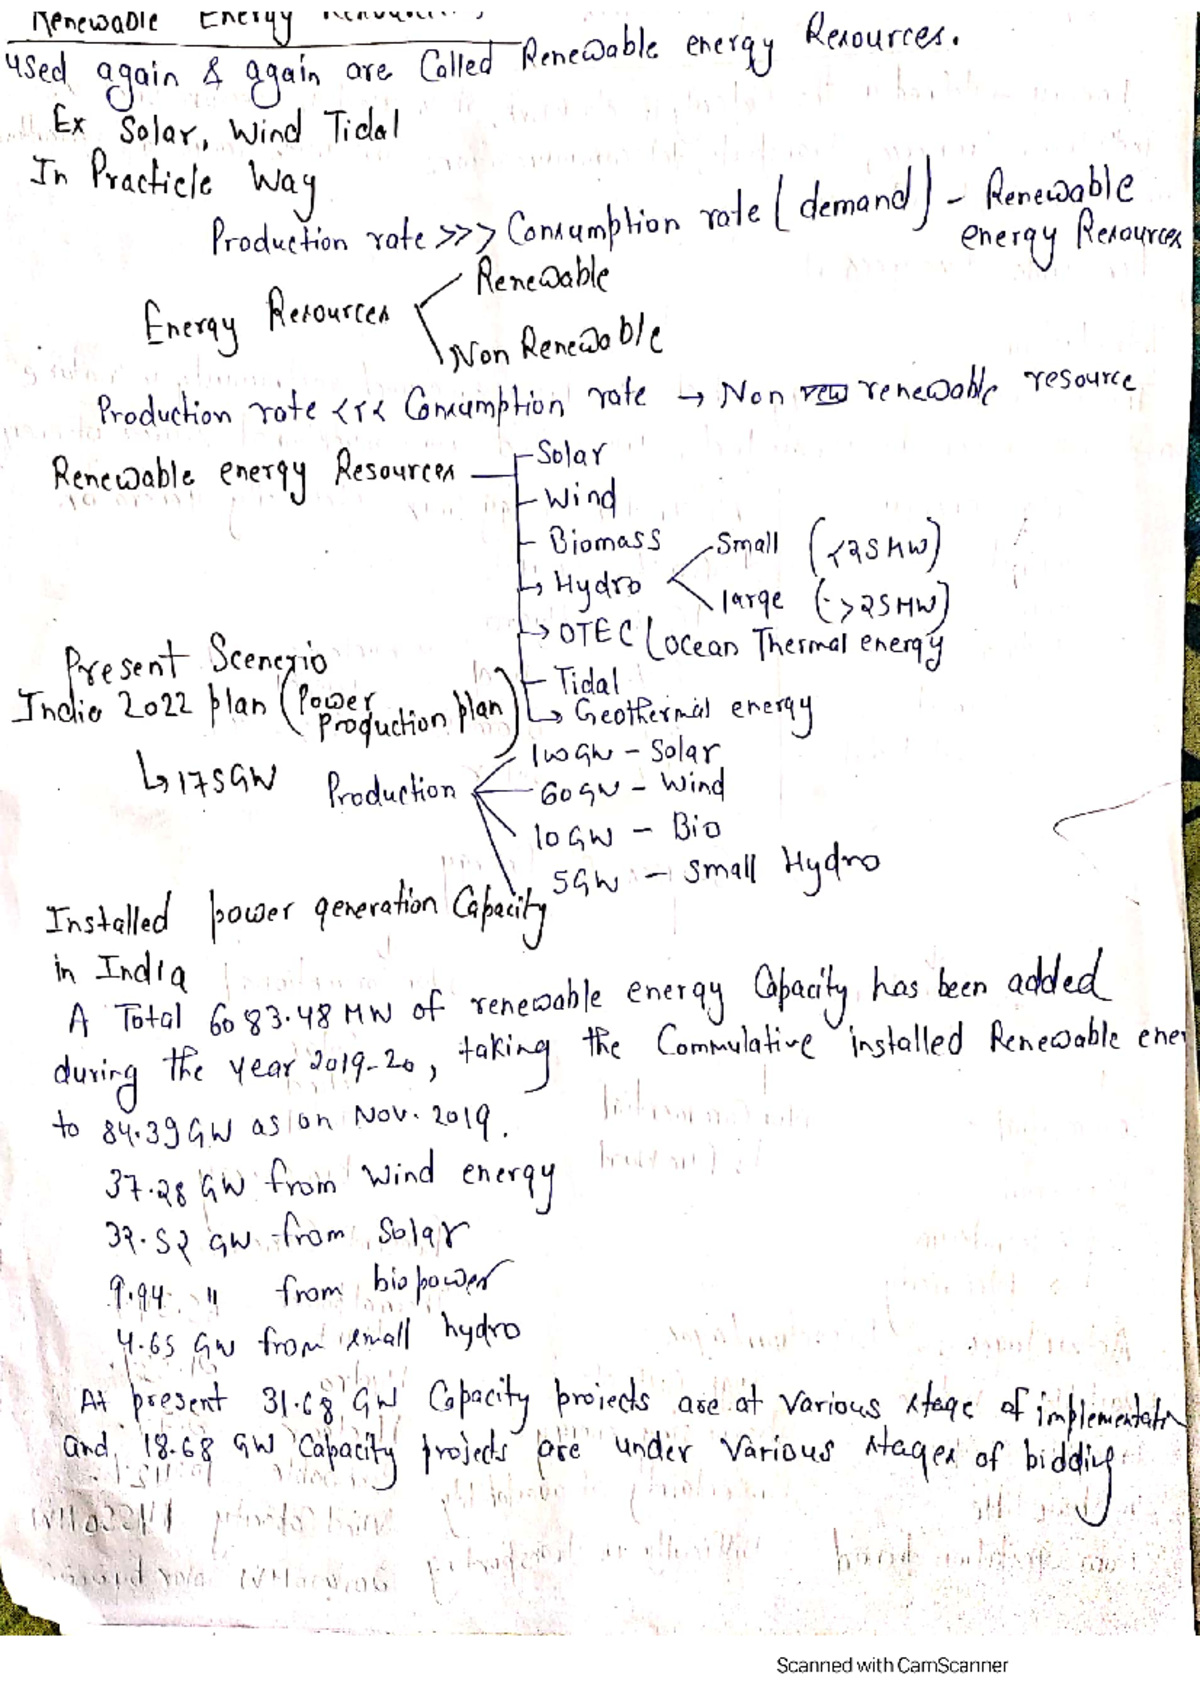 Renewable Energy Resources
used again & again are Called Renewable energy Resources.
Ex Solar, Wind Tidal
In Practicle Way
Production rate >>> Consumption rate (demand) - Renewable
energy Resources
Energy Resources
Renewable
Non Renewable
Production rate <<< Consumption rate → Non renewable resource
Renewable energy Resources
Solar
Wind
Biomass
Hydro
Small (<25MW)
large (>25MW)
OTEC (Ocean Thermal energy
Tidal
Geothermal energy
Present Scenerio
India 2022 plan (Power
Production plan)
↳ 175GW
Production
100 GW - Solar
60 GW - Wind
10 GW - Bio
5GW - Small Hydro
Installed power generation Capacity
in India
A Total 6083.48 MW of renewable energy Capacity has been added
during the year 2019-20, taking the Commulative installed Renewable ener
to 84.39 GW as on Nov. 2019.
37.28 GW from Wind energy
32.52 GW from Solar
9.94 " from biopower
4.65 GW from small hydro
At present 31.68 GW Capacity projects are at various stage of implementatn
and 18.68 GW Capacity projects are under various stages of bidding.
Scanned with CamScanner